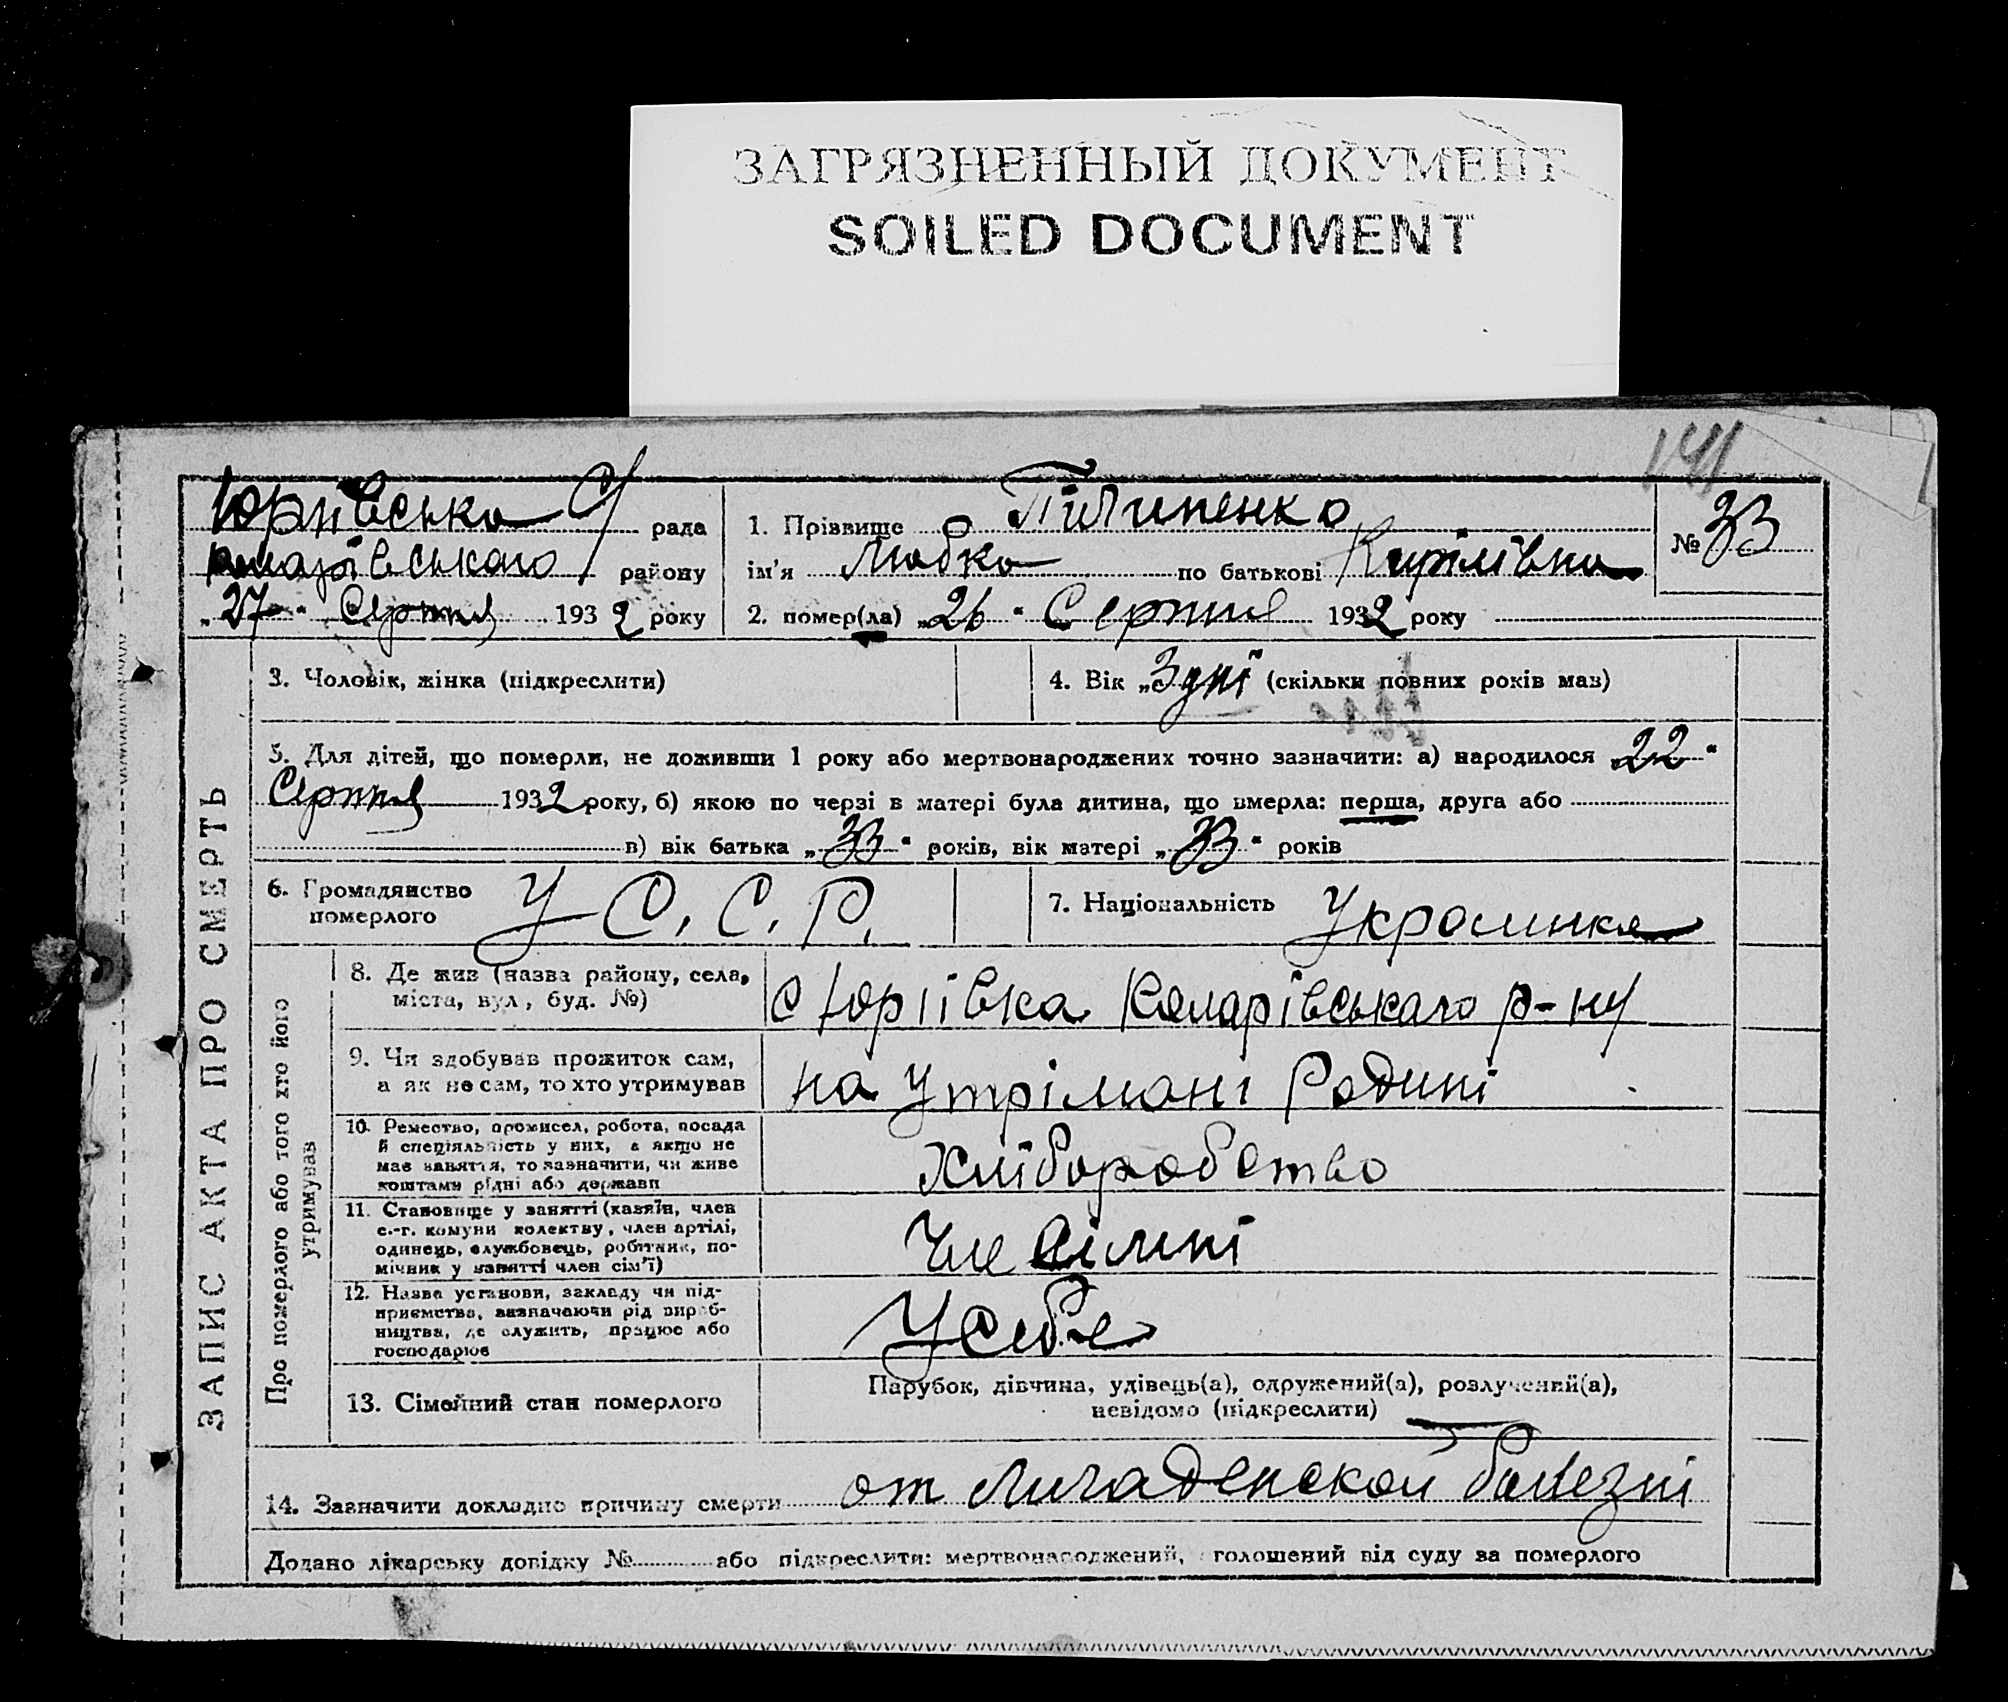 ЗАГРЯЗНЕННЫЙ ДОКУМЕНТ
SOILED DOCUMENT
141
Юріївська С/ рада
району
„27“ Серпня 1932 року
1. Прізвище Пилипенко
ім’я Любка по батькові Кирілівна
2. помер(ла) „26“ Серпня 1932 року
№ 33
ЗАПИС АКТА ПРО СМЕРТЬ
3. Чоловік, жінка (підкреслити)
4. Вік „3 дні“ (скільки повних років мав)
5. Для дітей, що померли, не доживши 1 року або мертвонароджених точно зазначити: а) народилося „22“
Серпня 1932 року, б) якою по черзі в матері була дитина, що вмерла: перша, друга або
в) вік батька „33“ років, вік матері „33“ років
6. Громадянство
померлого
У С. С. Р.
7. Національність Украинка
Про померлого або того хто його
утримував
8. Де жив (назва району, села,
міста, вул, буд. №)
с Юріївка Коларівського р-ну
9. Чи здобував прожиток сам,
а як не сам, то хто утримував
на Утрімані Родині
10. Ремество, промисел, робота, посада
й спеціяльність у них, а якщо не
має заняття, то зазначити, чи живе
коштами рідні або держави
Хліборобство
11. Становище у занятті (хазяїн, член
с.-г. комуни колектву, член артілі,
одинець, службовець, робітник, по-
мічник у занятті член сім’ї)
Чле сімні
12. Назва установи, закладу чи під-
приємства, зазначаючи рід вироб-
ництва, де служить, працює або
господарює
У себе
13. Сімейний стан померлого
Парубок, дівчина, удівець(а), одружений(а), розлучений(а),
невідомо (підкреслити)
14. Зазначити докладно причину смерти от младенской болезні
Додано лікарську довідку № або підкреслити: мертвонароджений, голошений від суду за померлого